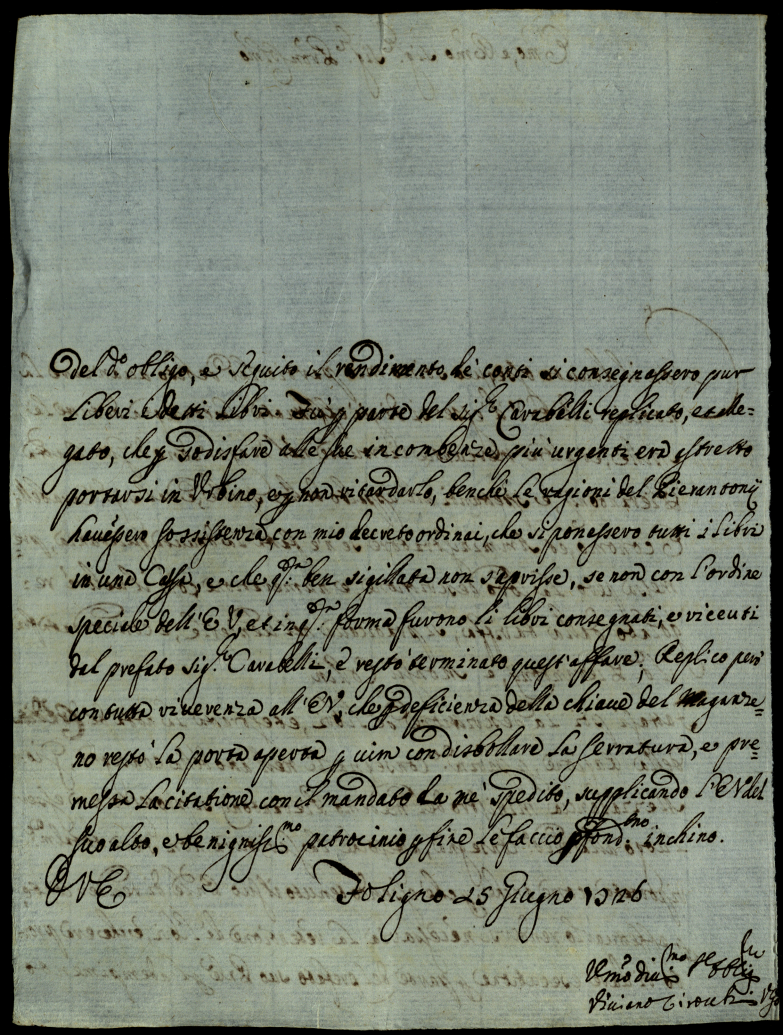 del d.º obligo, e seguito il rendimento de conti si consegnassero pur
liberi i detti libri. Fù p parte del sig.re Carabelli replicato, et alle=
gato, che p sodisfare alle sue incombenze più urgenti era astretto
portarsi in Urbino, e p non ritardarlo, benche le ragioni del Pierantonij
havessero sossistenza, con mio decreto ordinai, che si ponessero tutti i libri
in una Cassa, e che q.sta ben sigillata non s'aprisse, se non con l'ordine
speciale dell'E V, et in q.sta forma furono li libri consegnati, e riceuti
dal prefato sig.re Carabelli, e restò terminato quest'affare; Replico però
con tutta riverenza all'EV, che p deficienza della chiave del Magaze=
no restò la porta aperta p vim con disbollare la serratura, e pre=
messa la citatione con il mandato da me spedito, supplicando l'EV del
suo alto, e benigniss.mo patrocinio p fine le faccio profond.mo inchino.
D V E
Foligno 25 Giugno 1726
Um̃o div.mo et obl.
Viviano